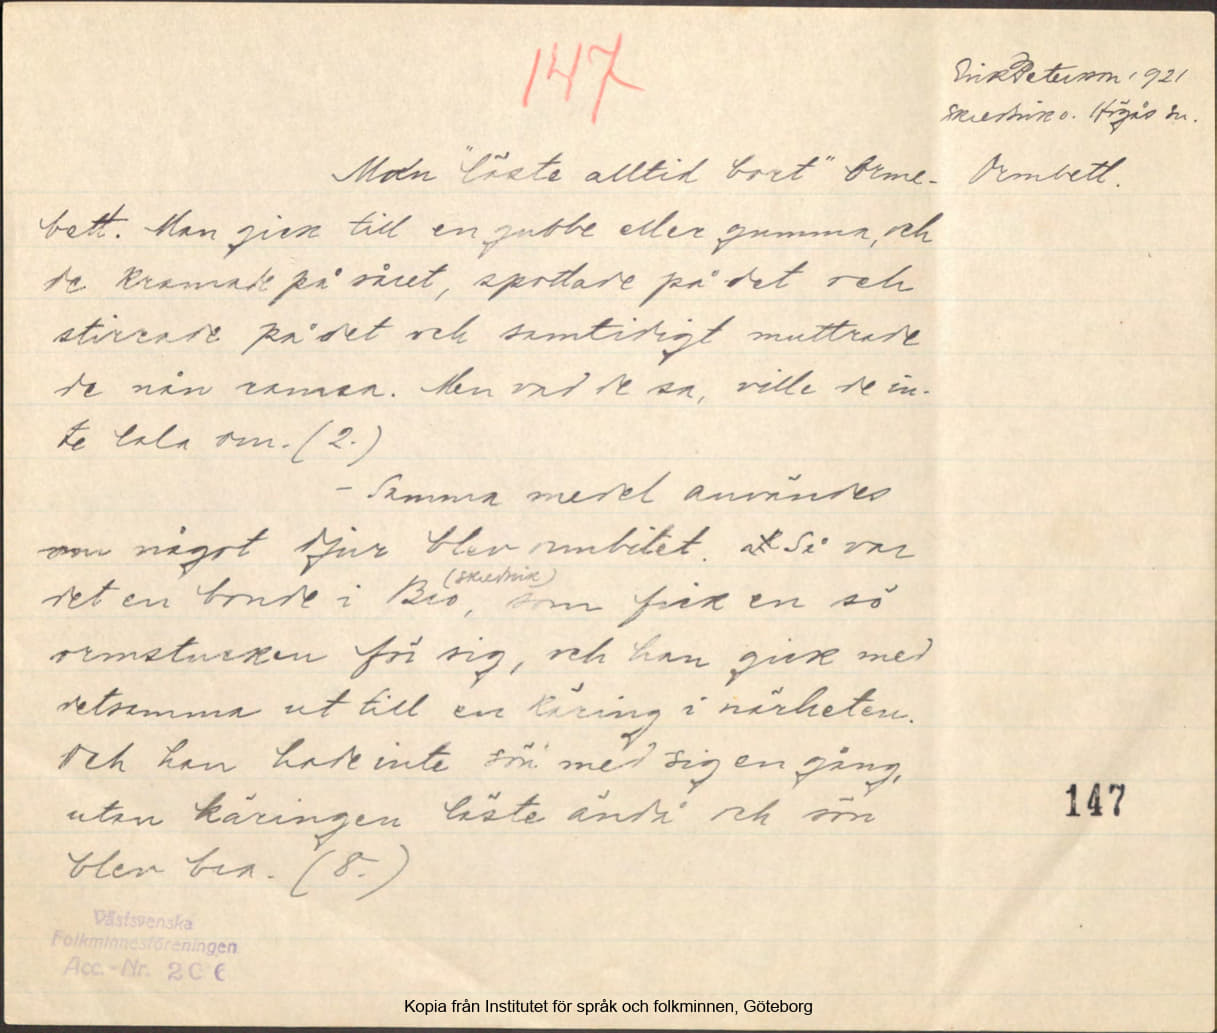 147
Erik Peterson 1921
Skredsvik o. Högås sn.
Man "läste alltid bort" Orme-
Ormbett.
bett. Man gick till en gubbe eller gumma, och
de kramade på såret, spottade på det och
stirrade på det och samtidigt muttrade
de nån ramsa. Men vad de sa, ville de in-
te tala om. (2.)
- Samma medel användes
om något djur blev ormbitet. Så var
(Skredsvik)
det en bonde i Bro, som fick en sö
ormstucken för sig, och han gick med
detsamma ut till en käring i närheten.
Och han hade inte sön med sig en gång,
utan käringen läste ändå och sön
blev bra. (8.)
147
Västsvenska
Folkminnesföreningen
Acc.-Nr. 206
Kopia från Institutet för språk och folkminnen, Göteborg